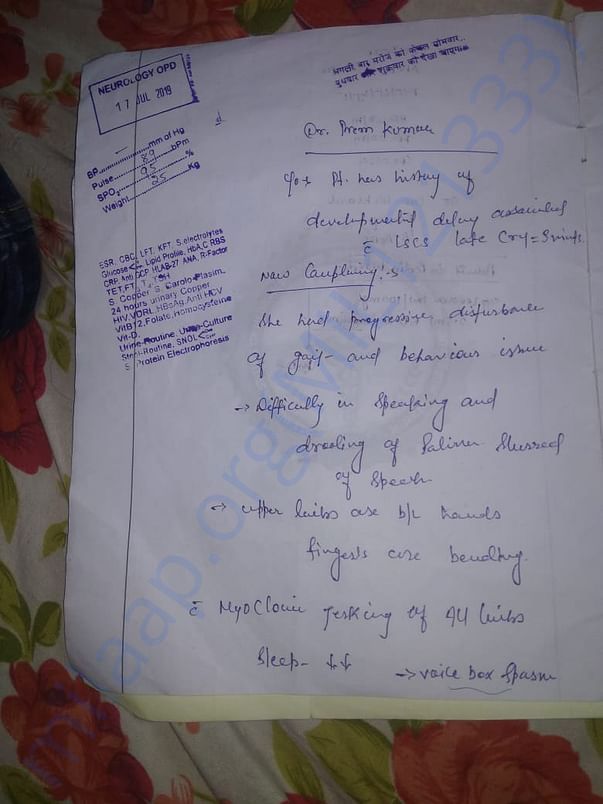 NEUROLOGY OPD
17 JUL 2019
अगली बार मरीज को केवल सोमवार..
बुधवार शुक्रवार को देखा जाएगा
BP..........mm of Hg
Pulse....89....bPm
SPO2....95....%
Weight....25....Kg
Dr. Prem Kumar
Pt. has history of
developmental delay associated
c̄ LSCS late Cry = 5 mints.
ESR, CBC, LFT, KFT, S.electrolytes
Glucose Lipid Profile, HbA,C RBS
CRP, Anti CCP, HLAB-27 ANA, R-Factor
TFT, FT TSH
S Copper, S. Carolo Plasim,
24 hours urinary Copper
HIV, VDRL, HBsAg, Anti HCV
VitB12, Folate, Homocysteine
Vit-D,
Urine-Routine, Urine-Culture
Stool-Routine, SNOL
S Protein Electrophoresis
Now Complining:-s
She had progressive disturbance
of gait - and behaviour issue
→ Difficulty in Speaking and
drooling of Saliva Slurred
of Speech
→ upper limbs are b/L hands
fingers are bending.
c̄ Myoclonic Jerking of all limbs
Sleep - ↓↓
→ voice box spasm